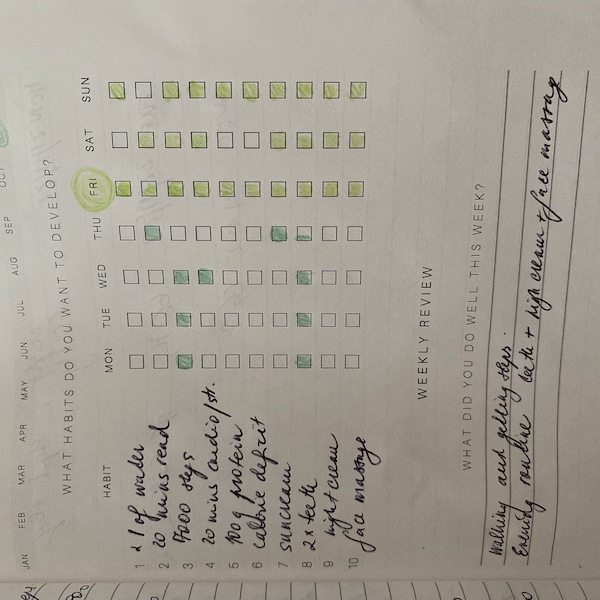 JAN FEB MAR APR MAY JUN JUL AUG SEP OCT
WHAT HABITS DO YOU WANT TO DEVELOP?
HABIT MON TUE WED THU FRI SAT SUN
1 2 l of water
2 20 mins read
3 7000 steps
4 20 mins cardio/str.
5 100g protein
6 calorie deficit
7 suncream
8 2x teeth
9 night cream
10 face massage
WEEKLY REVIEW
WHAT DID YOU DO WELL THIS WEEK?
Walking and getting steps.
Evening routine teeth + nigh cream + face massag